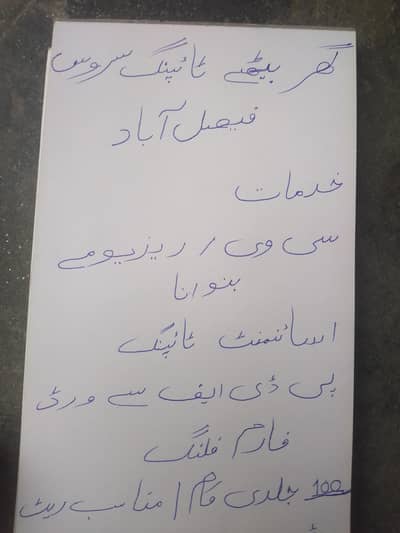 گھر بیٹھے ٹائپنگ سروس
فیصل آباد
خدمات
سی وی / ریزیومے
بنوانا
اسائنمنٹ ٹائپنگ
پی ڈی ایف سے ورڈ
فارم فلنگ
100 جلدی کام / مناسب ریٹ